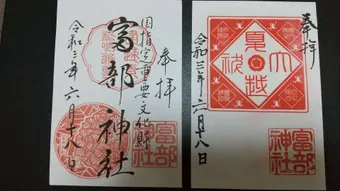 奉拝
国指定重要文化財
富部神社
令和三年六月十八日
奉拝
夏越
大祓
令和三年六月十八日
富部
神社